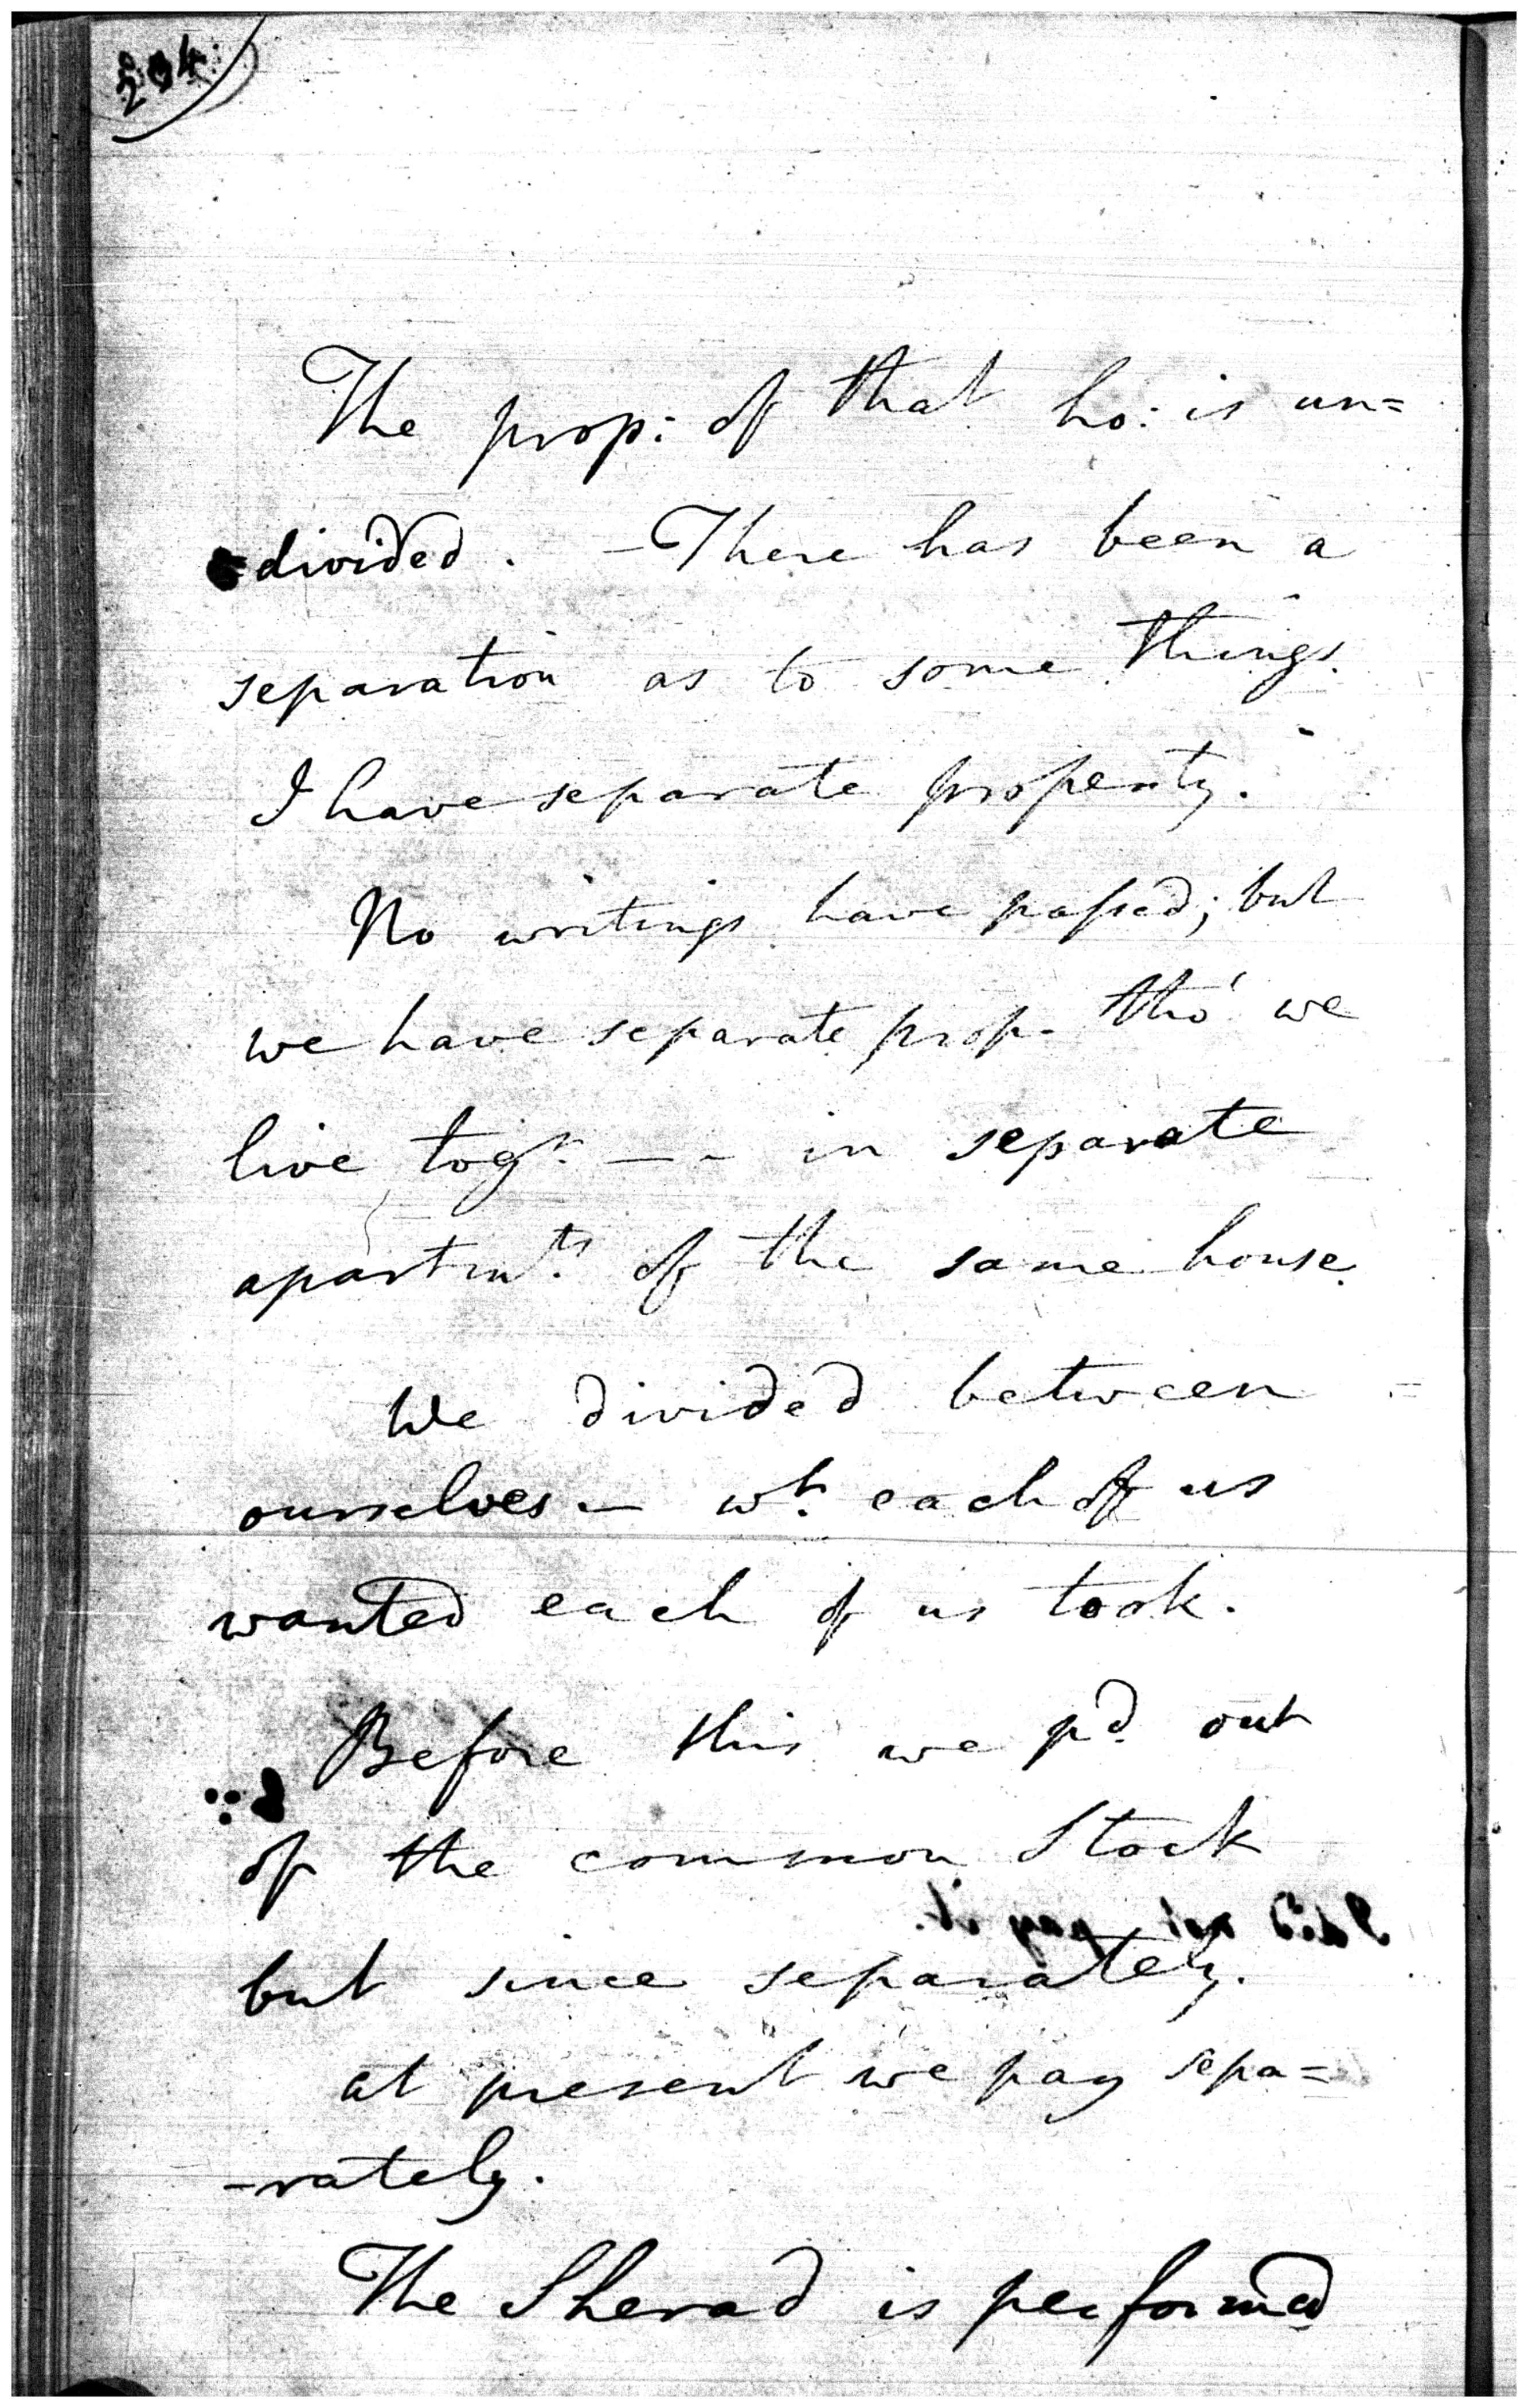 204.
The prop: of that ho: is un=
=divided. - There has been a
separation as to some things.
I have separate property.
No writings have passed; but
we have separate prop. tho' we
live togr. -- in separate
apartmts. of the same house.
We divided between
ourselves - wt. each of us
wanted each of us took.
Before this we pd. out
of the common Stock
but since separately.
at present we pay sepa=
-rately.
The Sherad is performed